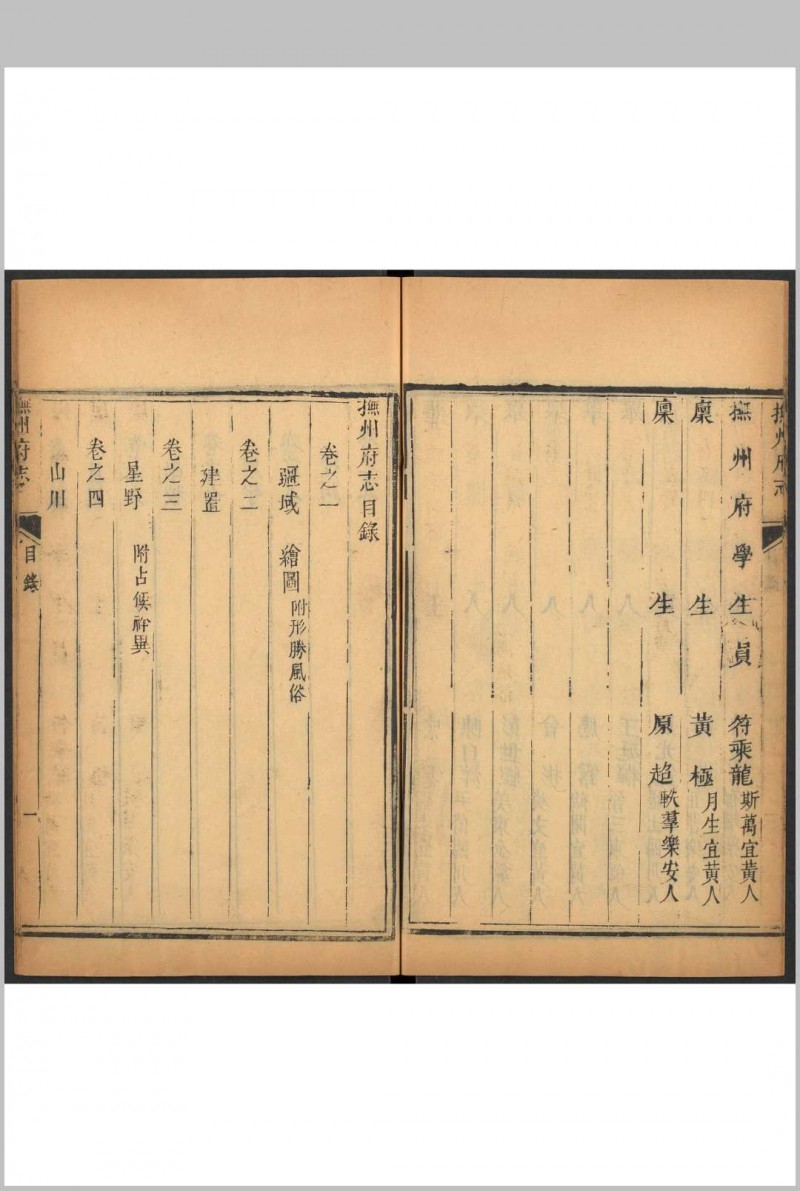 撫州府志
撫州府學生員 符乘龍 斯萬宜黃人
廩生 黃極 月生宜黃人
廩生 原超 軼羣樂安人
撫州府志目錄
卷之一
疆域 繪圖 附形勝風俗
卷之二
建置
卷之三
星野 附占候祥異
卷之四
山川
撫州府志 目錄 一